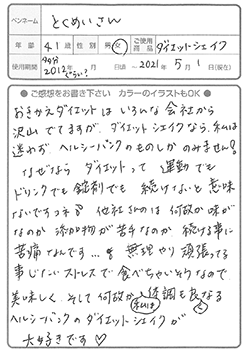 ペンネーム とくめいさん
年齢 41歳 性別 男・女 ご使用商品 ダイエットシェイク
使用期間 2012年 日頃 ～ 2021年 5月 1日(現在)
●ご感想をお書き下さい カラーのイラストもOK●
おきかえダイエットは いろんな会社から
沢山でてますが、ダイエットシェイクなら、私は
迷わず ヘルシーバンクのものしかのみません!
なぜなら ダイエットって 運動でも
ドリンクでも錠剤でも 続けないと意味
ないですっネ 他社さんのは 何故か味が
なのか 添加物が苦手なのか 続ける事に
苦痛なんです…。無理やり 頑張ってる
事じたいストレスで食べちゃいそうなので
美味しく、そして何故か 私は 体調も良くなる
ヘルシーバンクのダイエットシェイクが
大好きです♡